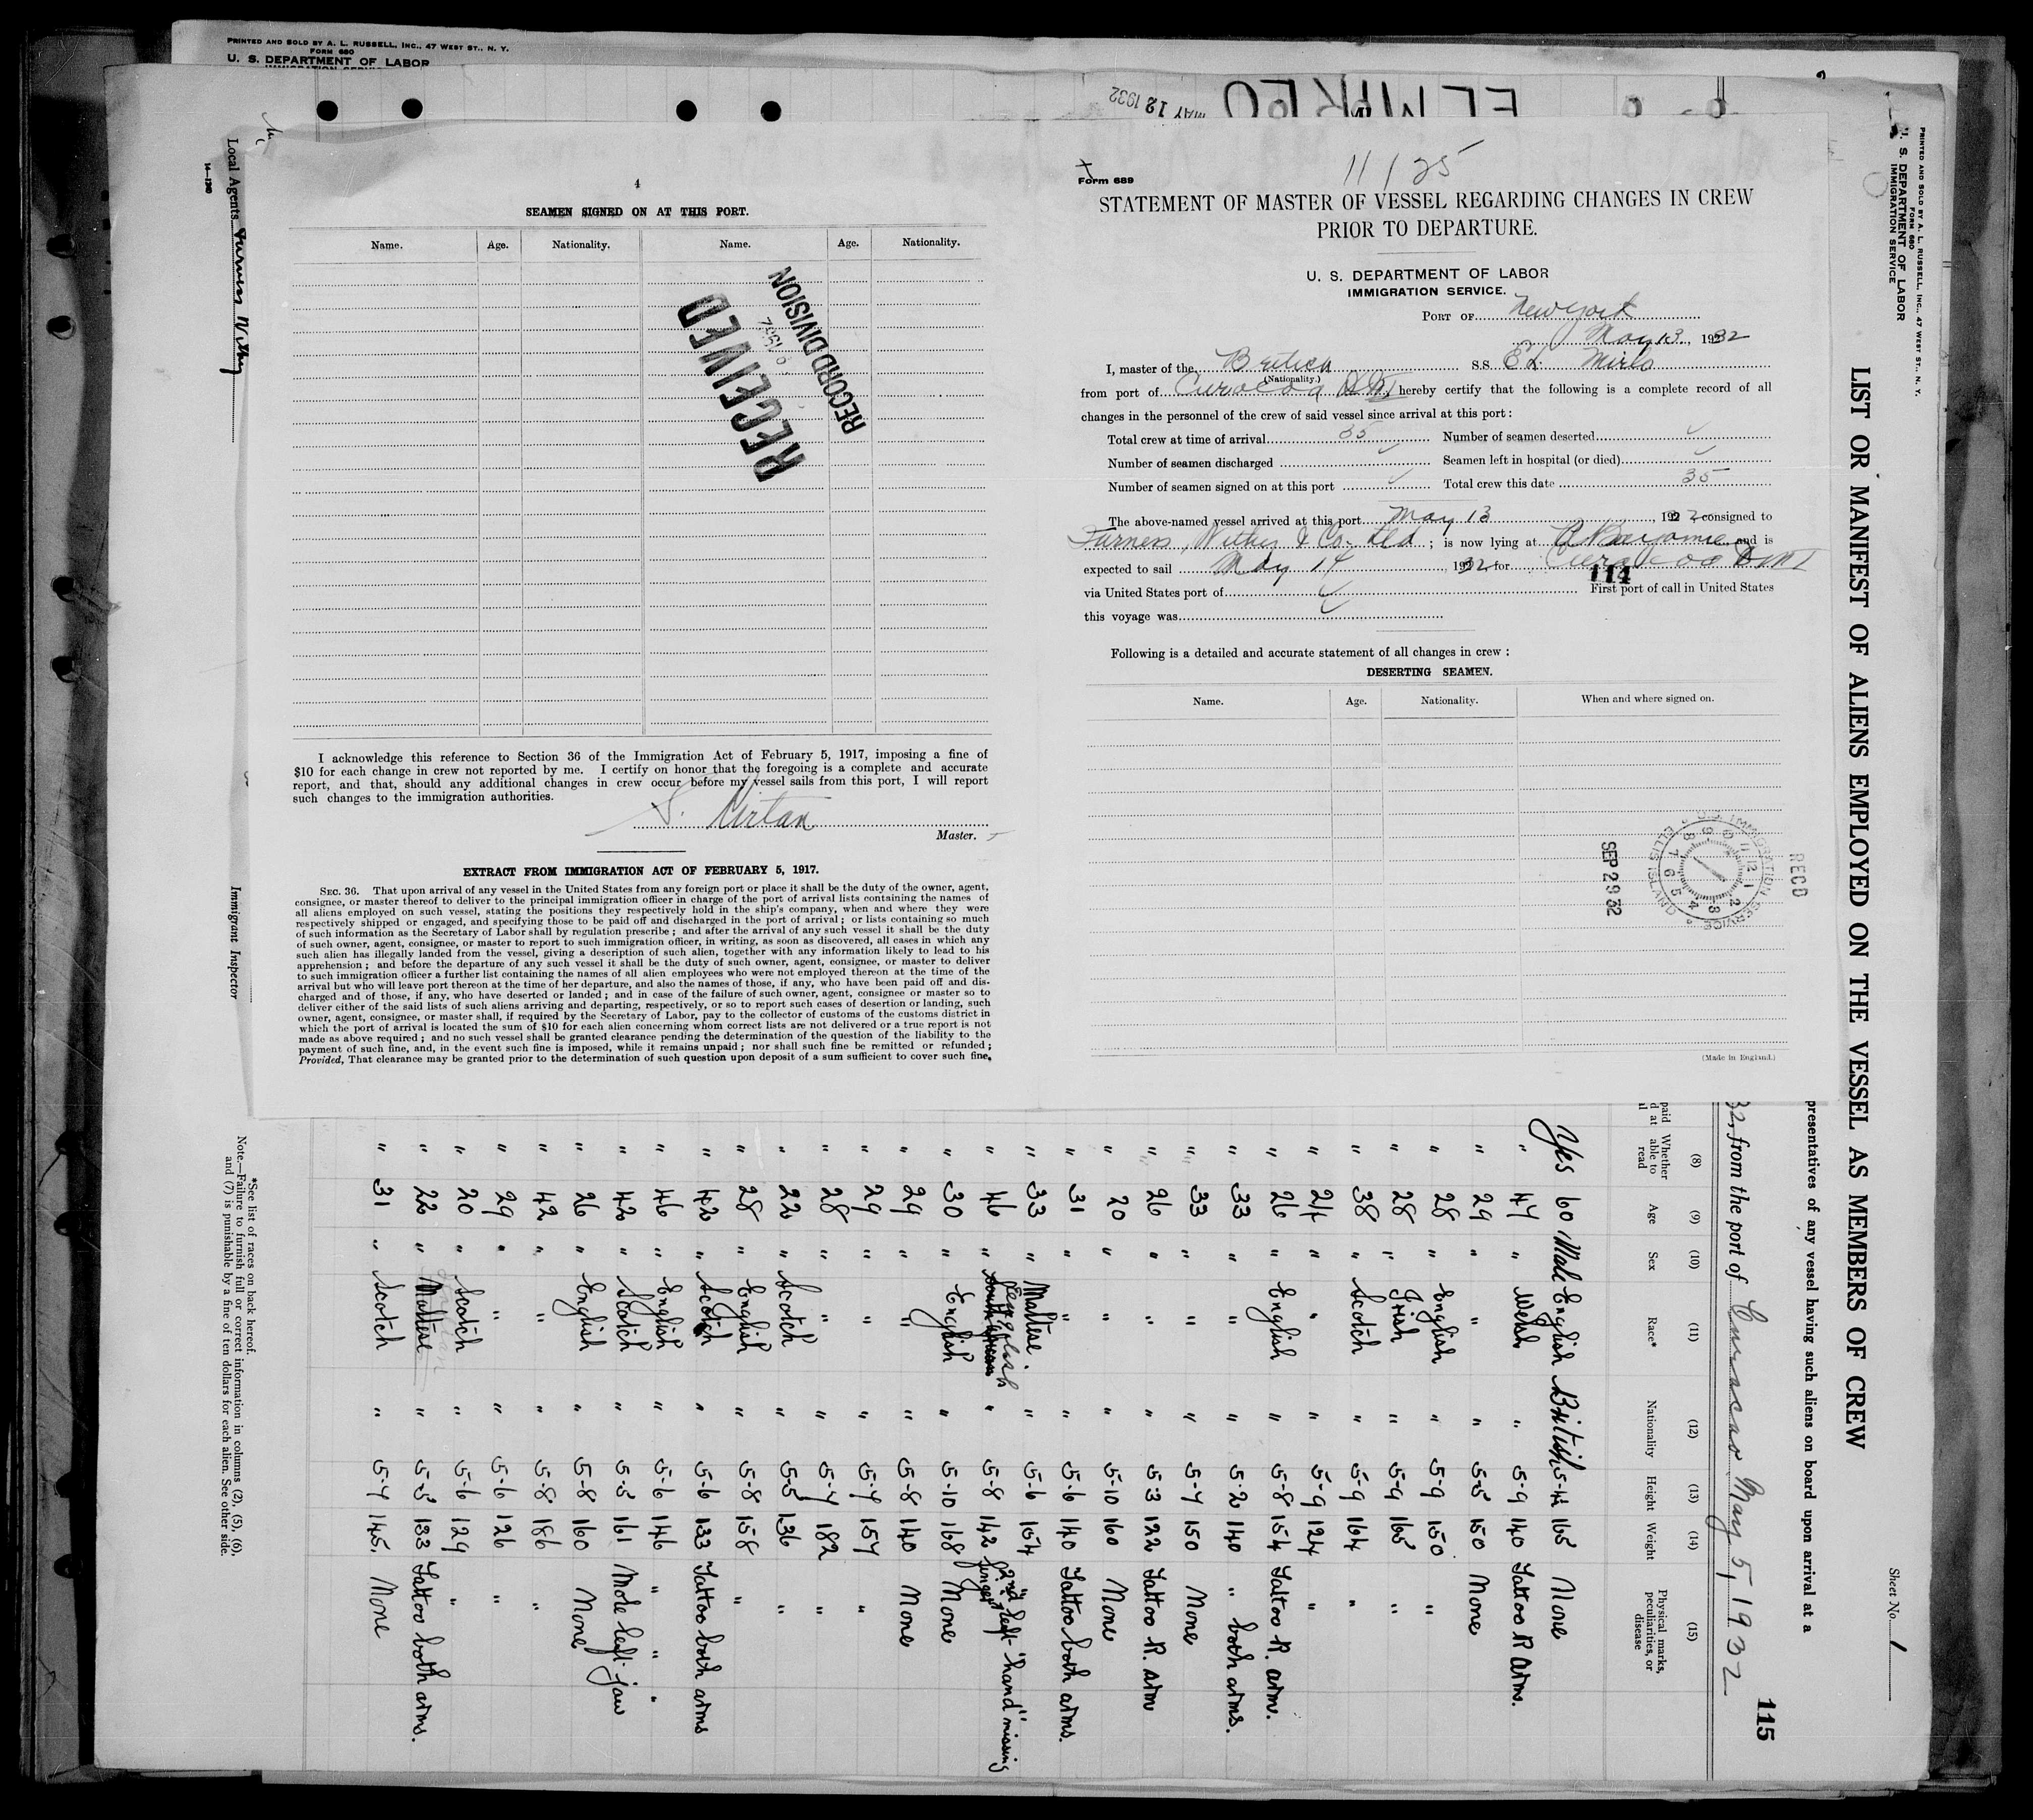 PRINTED AND SOLD BY A. L. RUSSELL, INC., 47 WEST ST., N. Y.
FORM 680
U. S. DEPARTMENT OF LABOR
IMMIGRATION SERVICE
MAY 12 1932
EL MIRLO
4
SEAMEN SIGNED ON AT THIS PORT.
Name. Age. Nationality. Name. Age. Nationality.
RECEIVED
RECORD DIVISION
I acknowledge this reference to Section 36 of the Immigration Act of February 5, 1917, imposing a fine of
$10 for each change in crew not reported by me. I certify on honor that the foregoing is a complete and accurate
report, and that, should any additional changes in crew occur before my vessel sails from this port, I will report
such changes to the immigration authorities.
S. Kirtan
Master.
EXTRACT FROM IMMIGRATION ACT OF FEBRUARY 5, 1917.
SEC. 36. That upon arrival of any vessel in the United States from any foreign port or place it shall be the duty of the owner, agent,
consignee, or master thereof to deliver to the principal immigration officer in charge of the port of arrival lists containing the names of
all aliens employed on such vessel, stating the positions they respectively hold in the ship's company, when and where they were
respectively shipped or engaged, and specifying those to be paid off and discharged in the port of arrival; or lists containing so much
of such information as the Secretary of Labor shall by regulation prescribe; and after the arrival of any such vessel it shall be the duty
of such owner, agent, consignee, or master to report to such immigration officer, in writing, as soon as discovered, all cases in which any
such alien has illegally landed from the vessel, giving a description of such alien, together with any information likely to lead to his
apprehension; and before the departure of any such vessel it shall be the duty of such owner, agent, consignee, or master to deliver
to such immigration officer a further list containing the names of all alien employees who were not employed thereon at the time of the
arrival but who will leave port thereon at the time of her departure, and also the names of those, if any, who have been paid off and dis-
charged and of those, if any, who have deserted or landed; and in case of the failure of such owner, agent, consignee or master so to
deliver either of the said lists of such aliens arriving and departing, respectively, or so to report such cases of desertion or landing, such
owner, agent, consignee, or master shall, if required by the Secretary of Labor, pay to the collector of customs of the customs district in
which the port of arrival is located the sum of $10 for each alien concerning whom correct lists are not delivered or a true report is not
made as above required; and no such vessel shall be granted clearance pending the determination of the question of the liability to the
payment of such fine, and, in the event such fine is imposed, while it remains unpaid; nor shall such fine be remitted or refunded;
Provided, That clearance may be granted prior to the determination of such question upon deposit of a sum sufficient to cover such fine.
Form 689
11/25
STATEMENT OF MASTER OF VESSEL REGARDING CHANGES IN CREW
PRIOR TO DEPARTURE.
U. S. DEPARTMENT OF LABOR
IMMIGRATION SERVICE.
PORT OF New York
May 13, 1932
I, master of the British S.S. El Mirlo
(Nationality.)
from port of Curacoa DWI, hereby certify that the following is a complete record of all
changes in the personnel of the crew of said vessel since arrival at this port:
Total crew at time of arrival 35 Number of seamen deserted ✓
Number of seamen discharged ✓ Seamen left in hospital (or died) ✓
Number of seamen signed on at this port ✓ Total crew this date 35
The above-named vessel arrived at this port May 13, 1932 consigned to
Furness, Withy & Co. Ltd; is now lying at and is
expected to sail May 14, 1932 for Curacoa DWI
114
via United States port of ✓ First port of call in United States
this voyage was ✓
Following is a detailed and accurate statement of all changes in crew:
DESERTING SEAMEN.
Name. Age. Nationality. When and where signed on.
RECD
U.S. IMMIGRATION SERVICE
ELLIS ISLAND
SEP 29 32
(Made in England.)
Local Agents Furness Withy
14—1240
Immigrant Inspector
PRINTED AND SOLD BY A. L. RUSSELL, INC., 47 WEST ST., N. Y.
FORM 680
U. S. DEPARTMENT OF LABOR
IMMIGRATION SERVICE
Sheet No. 1
LIST OR MANIFEST OF ALIENS EMPLOYED ON THE VESSEL AS MEMBERS OF CREW
115
presentatives of any vessel having such aliens on board upon arrival at a
32, from the port of Curacao May 5, 1932
(8) (9) (10) (11) (12) (13) (14) (15)
Whether able to read Age Sex Race* Nationality Height Weight Physical marks, peculiarities, or disease
Yes 60 Male English British 5-4½ 165 None
" 47 " Welsh " 5-9 140 Tattoo R arm.
" 29 " " " 5-5 150 None
" 28 " English " 5-9 150 "
" 28 " Irish " 5-9 165 "
" 38 " Scotch " 5-9 164 "
" 24 " " " 5-9 124 "
" 26 " English " 5-8 154 Tattoo R. arm.
" 33 " " " 5-2 140 " both arms.
" 33 " " " 5-7 150 None
" 26 " " " 5-3 122 Tattoo R. arm
" 20 " " " 5-10 160 None
" 31 " " " 5-6 140 Tattoo both arms.
" 33 " Maltese " 5-6 154 "
" 46 " English " 5-8 142 2nd finger left hand missing
" 30 " English " 5-10 168 None
" 29 " " " 5-8 140 None
" 29 " " " 5-7 157 "
" 28 " " " 5-7 182 "
" 22 " Scotch " 5-5 136 "
" 28 " English " 5-8 158 "
" 42 " Scotch " 5-6 133 Tattoo both arms
" 46 " English " 5-6 146 " " "
" 42 " Scotch " 5-5 161 Mole left jaw
" 26 " English " 5-8 160 None
" 42 " " " 5-8 186 "
" 29 " " " 5-6 126 "
" 20 " Scotch " 5-6 129 "
" 22 " Maltese " 5-5 133 Tattoo both arms.
" 31 " Scotch " 5-7 145. None
*See list of races on back hereof.
Note.—Failure to furnish full or correct information in columns (2), (5), (6),
and (7) is punishable by a fine of ten dollars for each alien. See other side.